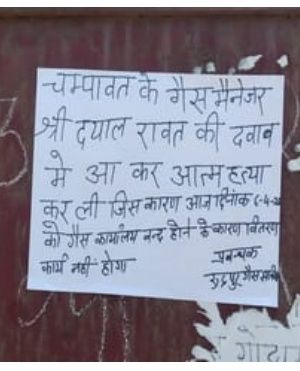 चम्पावत के गैस मैनेजर
श्री दयाल रावत की दवाब
मे आ कर आत्महत्या
कर ली जिस कारण आज दिनांक
को गैस कार्यालय बन्द होने के कारण वितरण
कार्य नहीं होगा
प्रबन्धक